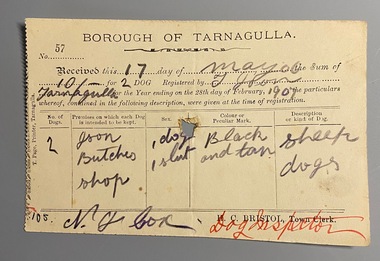 BOROUGH OF TARNAGULLA.
No. 57
Received this 17 day of may 06 the Sum of
10/- for 2 DOG Registered by
Tarnagulla for the Year ending on the 28th day of February, 1907 the particulars
whereof, contained in the following description, were given at the time of registration.
No. of Dogs. Premises on which each Dog is intended to be kept. Sex. Colour or Peculiar Mark. Description or kind of Dog.
2 Butcher shop 1 dog 1 slut Black and tan sheep dogs
T. Page, Printer, Tarnagulla
105. N. J. Cox H. C. BRISTOL, Town Clerk.
Dog Inspector